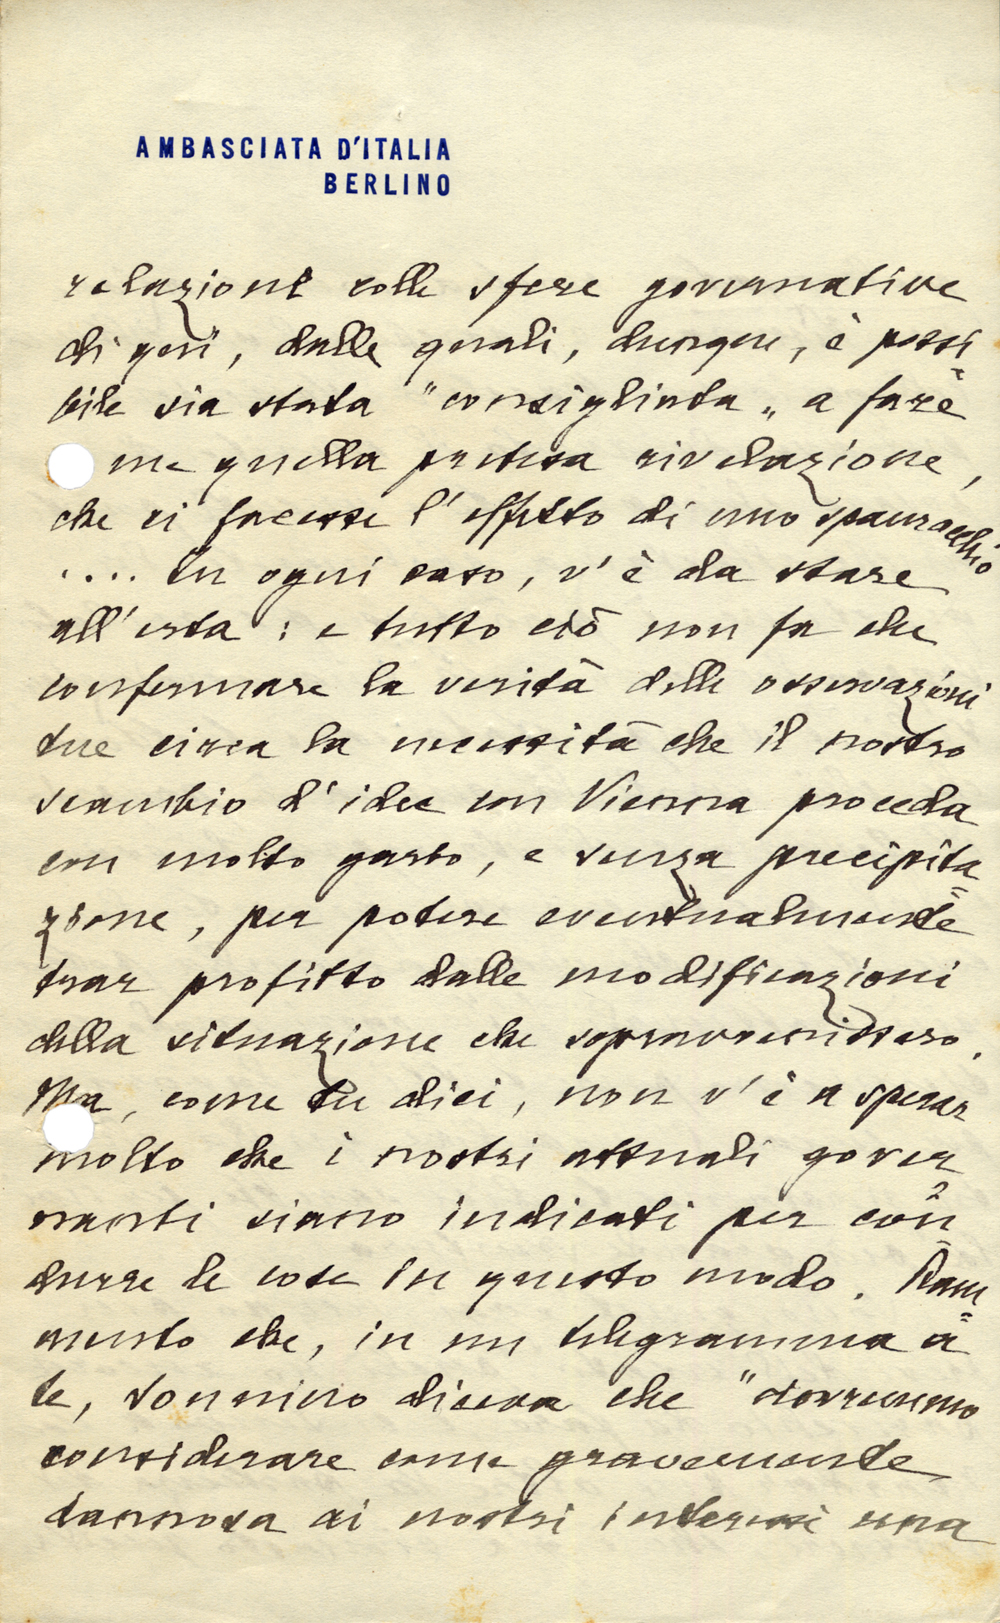 AMBASCIATA D'ITALIA
BERLINO
relazione colle sfere governative
di qui, dalle quali, dunque, è possi=
bile sia stata "consigliata„ a fare
me quella pretesa rivelazione,
che ci facesse l'effetto di uno spauracchio
.... In ogni caso, v'è da stare
all'erta: e tutto ciò non fa che
confermare la verità delle osservazioni
tue circa la necessità che il nostro
scambio d'idee con Vienna proceda
con molto garbo, e senza precipita=
zione, per potere eventualmente
trar profitto dalle modificazioni
della situazione che sopravvenissero.
Ma, come tu dici, non v'è a sperar
molto che i nostri attuali gover
nanti siano indicati per con
durre le cose in questo modo. Ram=
mento che, in un telegramma a
te, Sonnino diceva che "dovremmo
considerare come gravemente
dannosa ai nostri interessi una